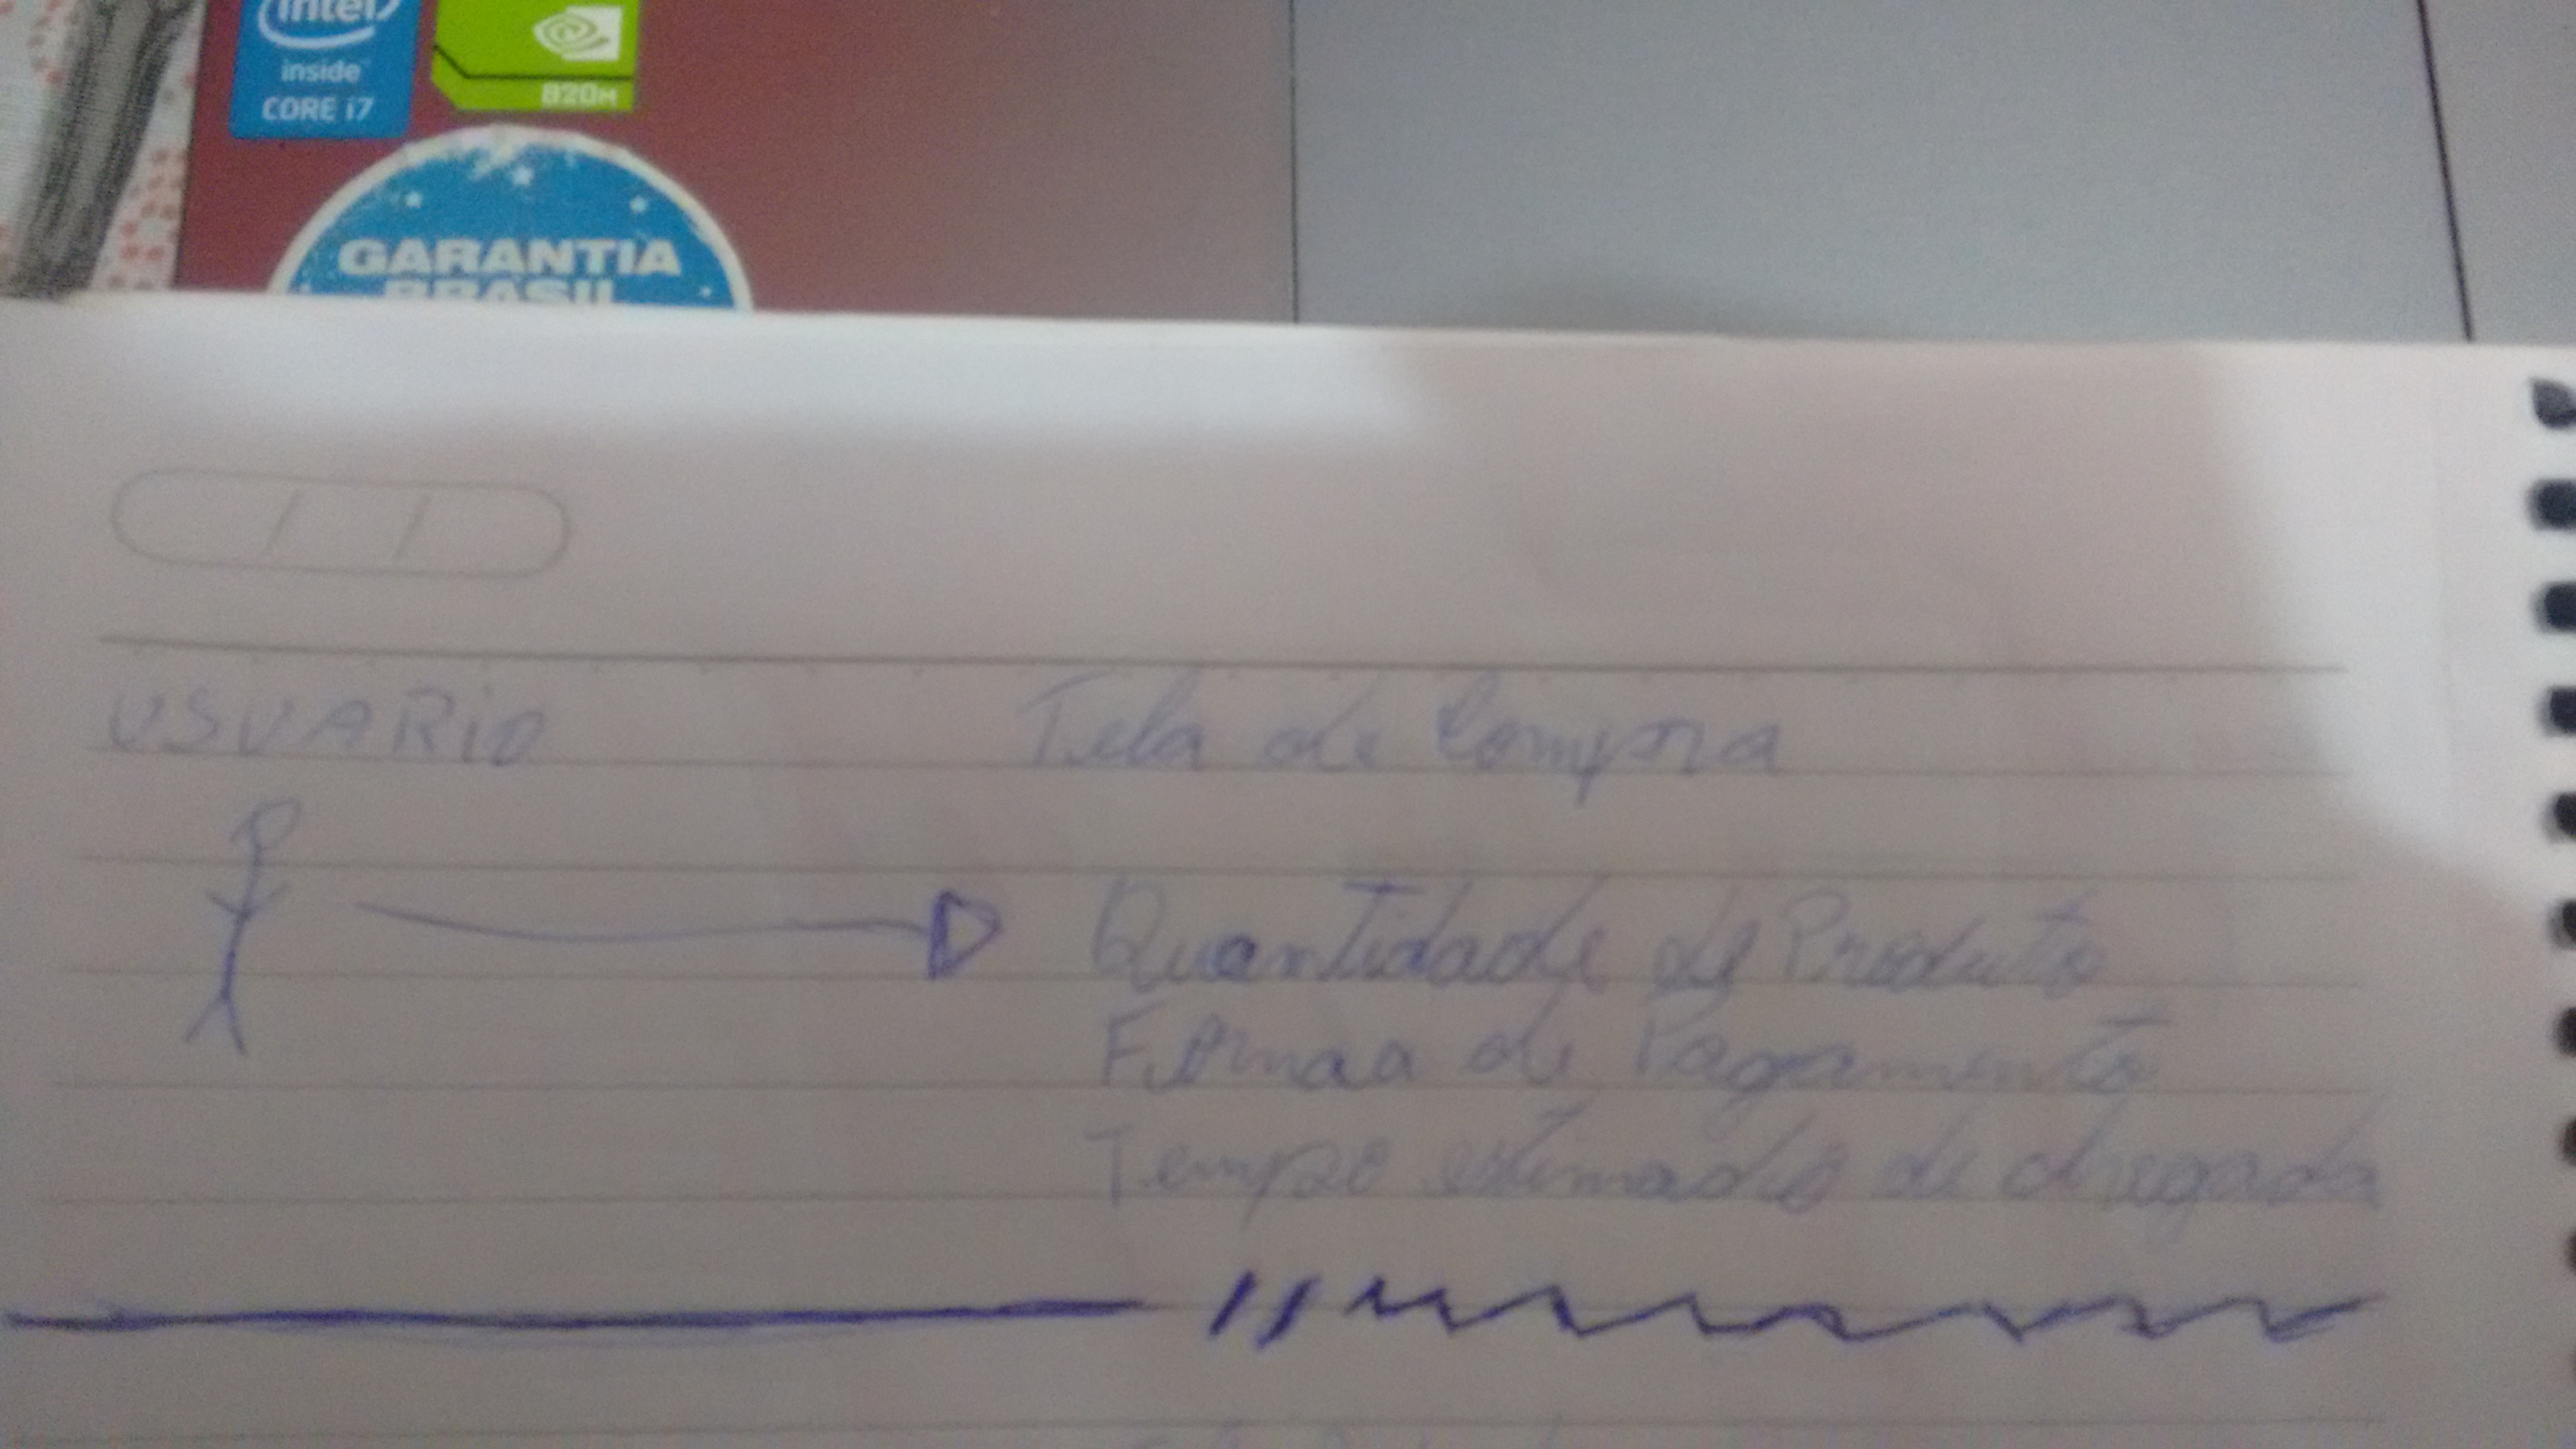 intel
inside
CORE i7
820M
GARANTIA
BRASIL
USUARIO
Tela de Compra
Quantidade de Produto
Forma de Pagamento
Tempo estimado de chegada